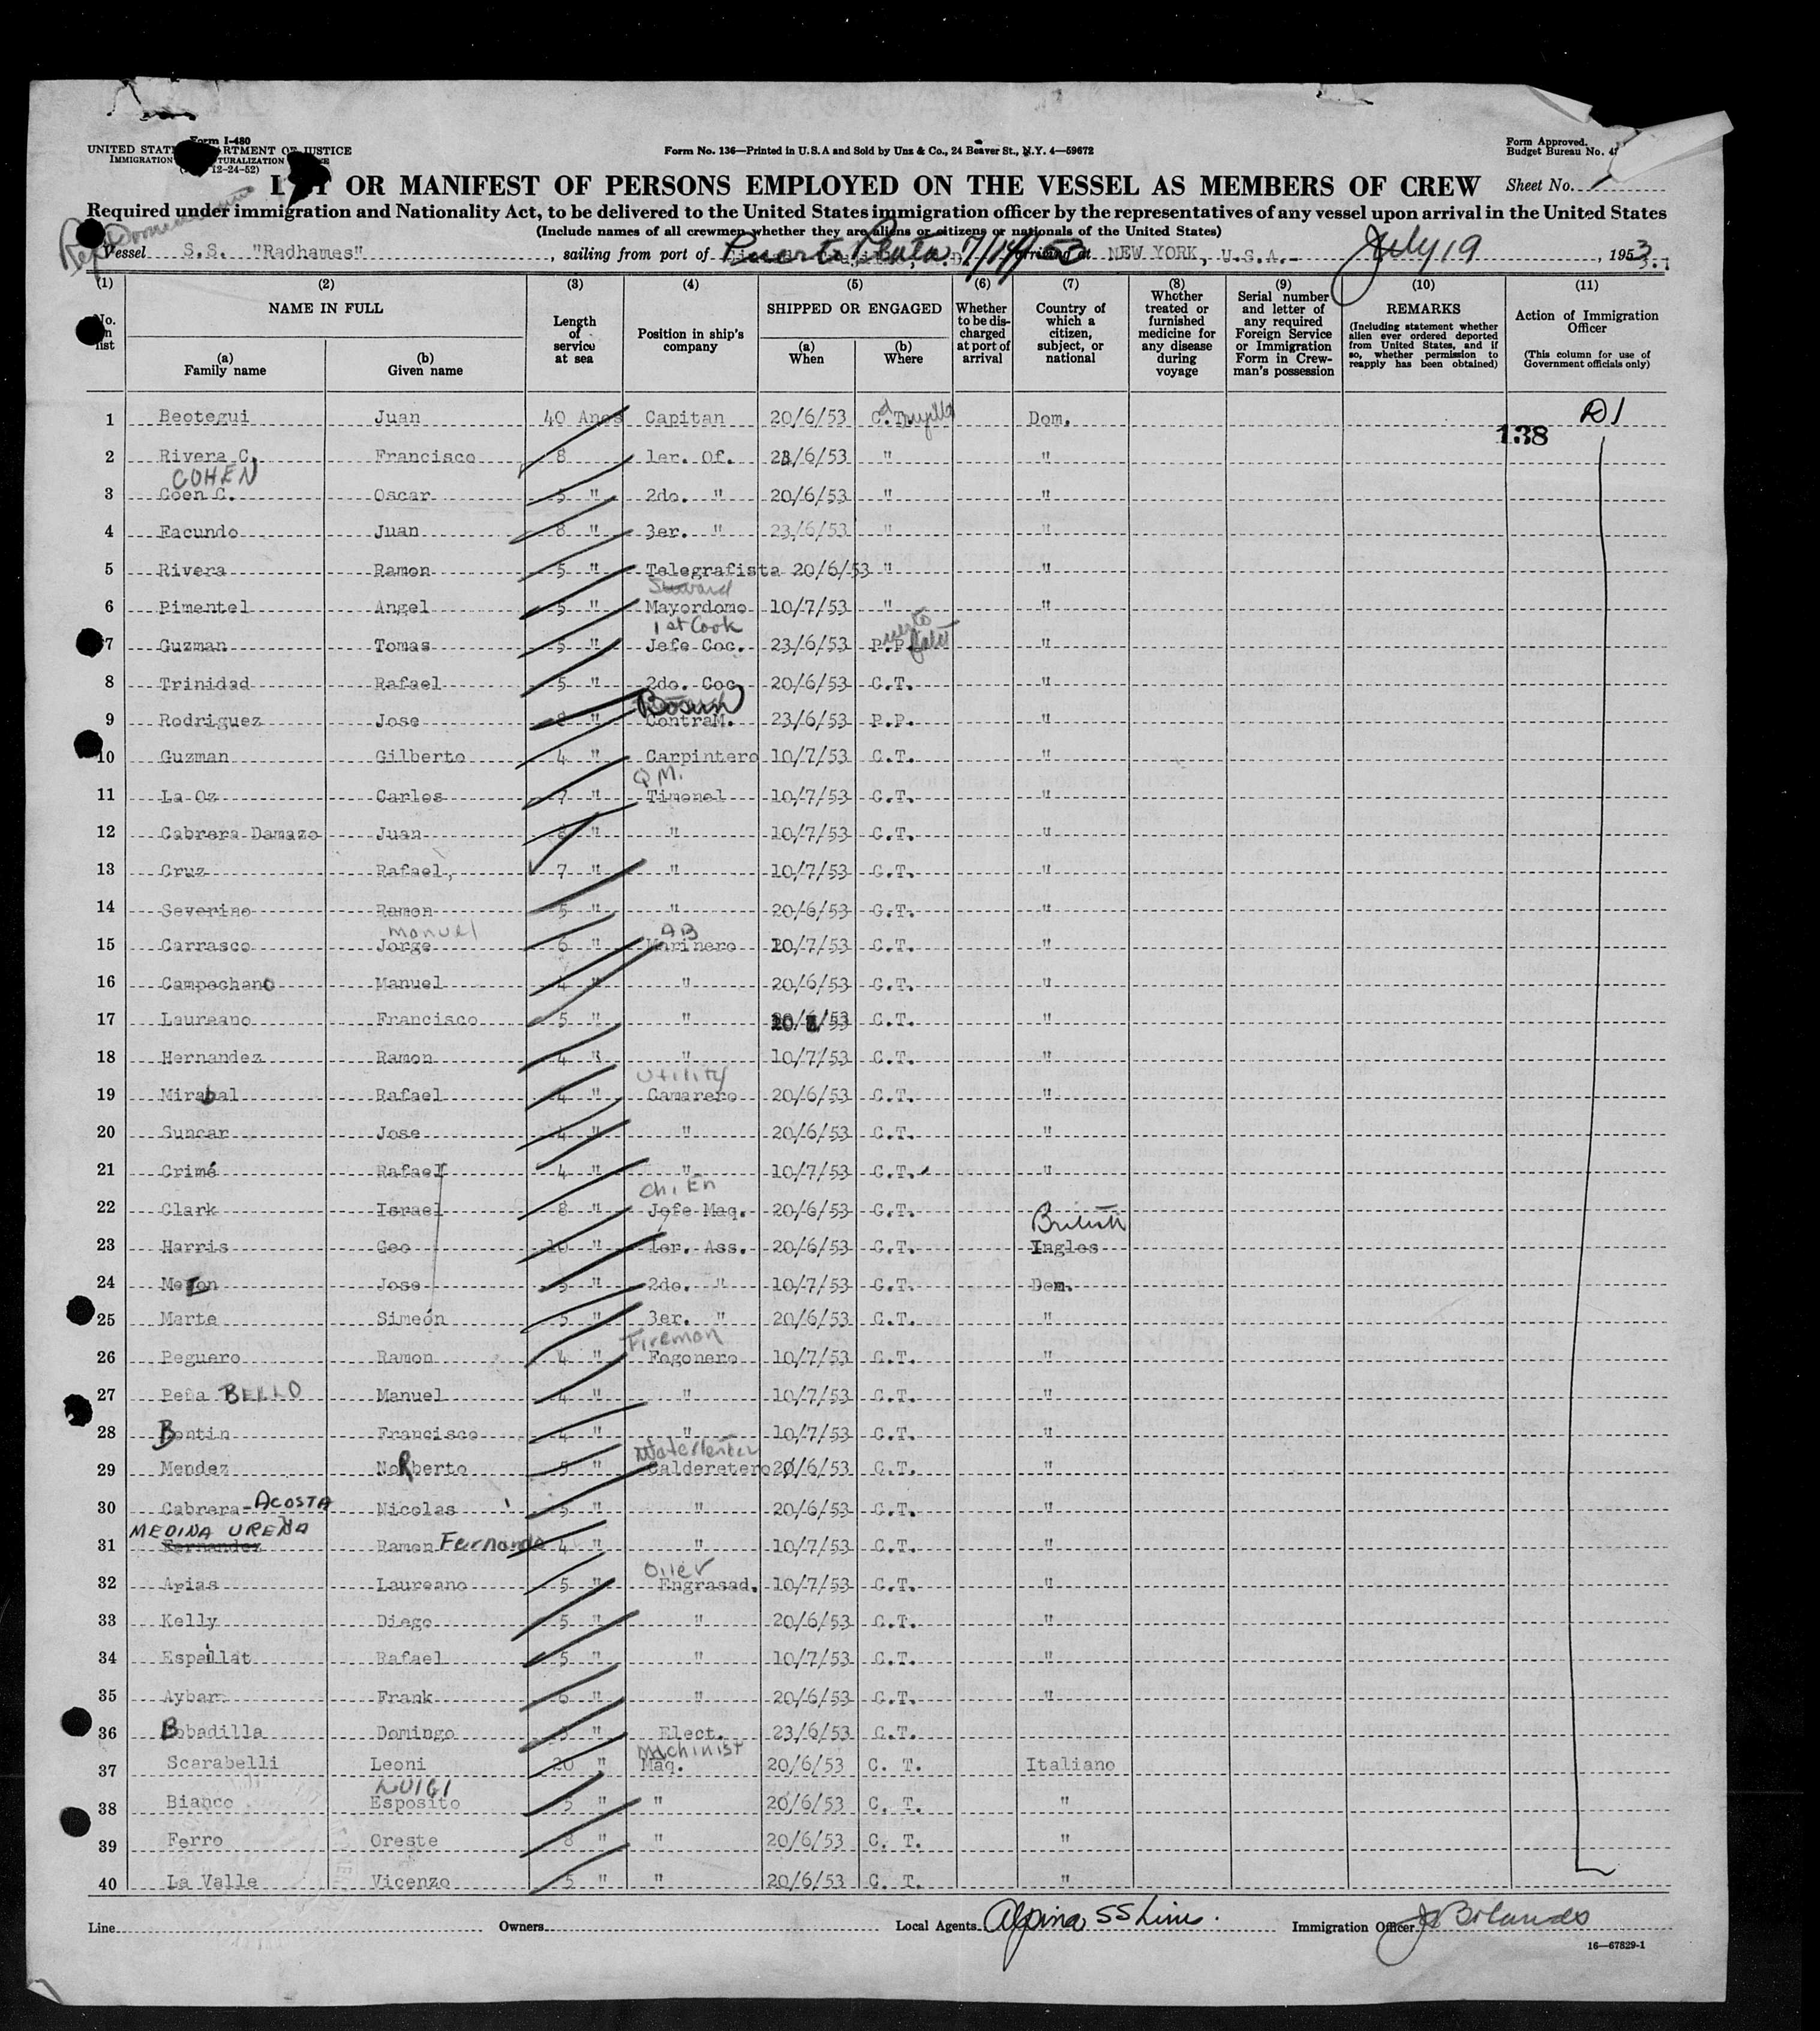 Form I-480
UNITED STATES DEPARTMENT OF JUSTICE
IMMIGRATION NATURALIZATION
12-24-52)
Form No. 136—Printed in U.S.A and Sold by Unz & Co., 24 Beaver St., N.Y. 4—59672
Form Approved.
Budget Bureau No. 43
LIST OR MANIFEST OF PERSONS EMPLOYED ON THE VESSEL AS MEMBERS OF CREW Sheet No.
Required under immigration and Nationality Act, to be delivered to the United States immigration officer by the representatives of any vessel upon arrival in the United States
(Include names of all crewmen whether they are aliens or citizens or nationals of the United States)
Vessel S.S. "Radhames", sailing from port of Puerto Plata 7/14/53 arriving at NEW YORK, U.S.A.- July 19, 1953
(1) (2) (3) (4) (5) (6) (7) (8) (9) (10) (11)
No. on list
NAME IN FULL
(a) Family name
(b) Given name
Length of service at sea
Position in ship's company
SHIPPED OR ENGAGED
(a) When
(b) Where
Whether to be discharged at port of arrival
Country of which a citizen, subject, or national
Whether treated or furnished medicine for any disease during voyage
Serial number and letter of any required Foreign Service or Immigration Form in Crewman's possession
REMARKS
(Including statement whether alien ever ordered deported from United States, and if so, whether permission to reapply has been obtained)
Action of Immigration Officer
(This column for use of Government officials only)
1 Beotegui Juan 40 Anos Capitan 20/6/53 C. Trujillo Dom. D1
138
2 Rivera C. Francisco 8 1er. Of. 23/6/53 " "
COHEN
3 Coen C. Oscar 5 " 2do. " 20/6/53 " "
4 Facundo Juan 8 " 3er. " 23/6/53 " "
5 Rivera Ramon 5 " Telegrafista 20/6/53 " "
Steward
6 Pimentel Angel 5 " Mayordomo 10/7/53 " "
1st Cook
7 Guzman Tomas 5 " Jefe Coc. 23/6/53 P.P. "
8 Trinidad Rafael 5 " 2do. Coc. 20/6/53 C.T. "
Bosun
9 Rodriguez Jose 8 " ContraM. 23/6/53 P.P. "
10 Guzman Gilberto 4 " Carpintero 10/7/53 C.T. "
Q M.
11 La Oz Carlos 7 " Timonel 10/7/53 C.T. "
12 Cabrera Damazo Juan 8 " " 10/7/53 C.T. "
13 Cruz Rafael, 7 " " 10/7/53 C.T. "
14 Severino Ramon 5 " " 20/6/53 C.T. "
Manuel AB
15 Carrasco Jorge 6 " Marinero 10/7/53 C.T. "
16 Campechano Manuel 4 " " 20/6/53 C.T. "
17 Laureano Francisco 5 " " C.T. "
18 Hernandez Ramon 4 " " 10/7/53 C.T. "
Utility
19 Mirabal Rafael 4 " Camarero 20/6/53 C.T. "
20 Suncar Jose 4 " " 20/6/53 C.T. "
21 Crimé Rafael 4 " " 10/7/53 C.T. "
Ch. En
22 Clark Israel 8 " Jefe Maq. 20/6/53 C.T. "
British
23 Harris Geo 10 " 1er. Ass. 20/6/53 C.T. Ingles
24 Jose 5 " 2do. " 10/7/53 C.T. Dom.
25 Marte Simeón 5 " 3er. " 20/6/53 C.T. "
Fireman
26 Peguero Ramon 4 " Fogonero 10/7/53 C.T. "
27 Peña BELLO Manuel 4 " " 10/7/53 C.T. "
28 Bontin Francisco 4 " " 10/7/53 C.T. "
Watertender
29 Mendez NoRberto 5 " Calderetero 20/6/53 C.T. "
30 Cabrera-ACOSTA Nicolas 5 " " 20/6/53 C.T. "
MEDINA UREÑA
31 Fernandez Ramon Fernando 4 " " 10/7/53 C.T. "
Oiler
32 Arias Laureano 5 " Engrasad. 10/7/53 C.T. "
33 Kelly Diego 5 " " 20/6/53 C.T. "
34 Espaillat Rafael 5 " " 10/7/53 C.T. "
35 Aybar Frank 6 " " 20/6/53 C.T. "
36 Bobadilla Domingo " Elect. 23/6/53 C.T.
Machinist
37 Scarabelli Leoni 20 " Maq. 20/6/53 C. T. Italiano
LUIGI
38 Bianco Esposito 5 " " 20/6/53 C. T. "
39 Ferro Oreste 8 " " 20/6/53 C. T. "
40 La Valle Vicenzo 5 " " 20/6/53 C. T. "
Line Owners Local Agents Alpina SS Line. Immigration Officer
16—67829-1